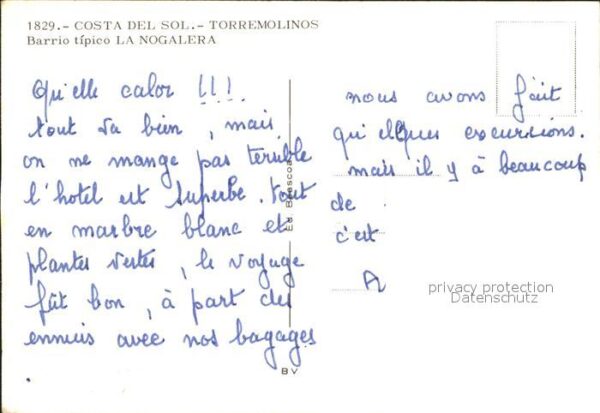 1829.- COSTA DEL SOL.- TORREMOLINOS
Barrio típico LA NOGALERA
Qu'elle calor !!!
tout va bien, mais
on ne mange pas terrible
l'hotel est superbe. tout
en marbre blanc et
plantes vertes, le voyage
fût bon, à part des
ennuis avec nos bagages
.
nous avons fait
qu'elques excursions.
mais il y à beaucoup
de
c'est
A
Ed. Brescoa
BV
privacy protection
Datenschutz